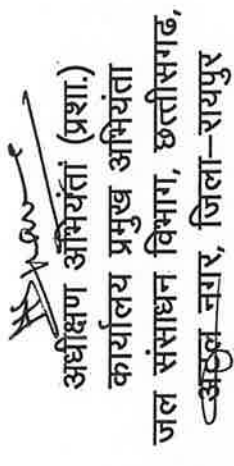 अधीक्षण अभियंता (प्रशा.)
कार्यालय प्रमुख अभियंता
जल संसाधन विभाग, छत्तीसगढ़,
अटल नगर, जिला–रायपुर